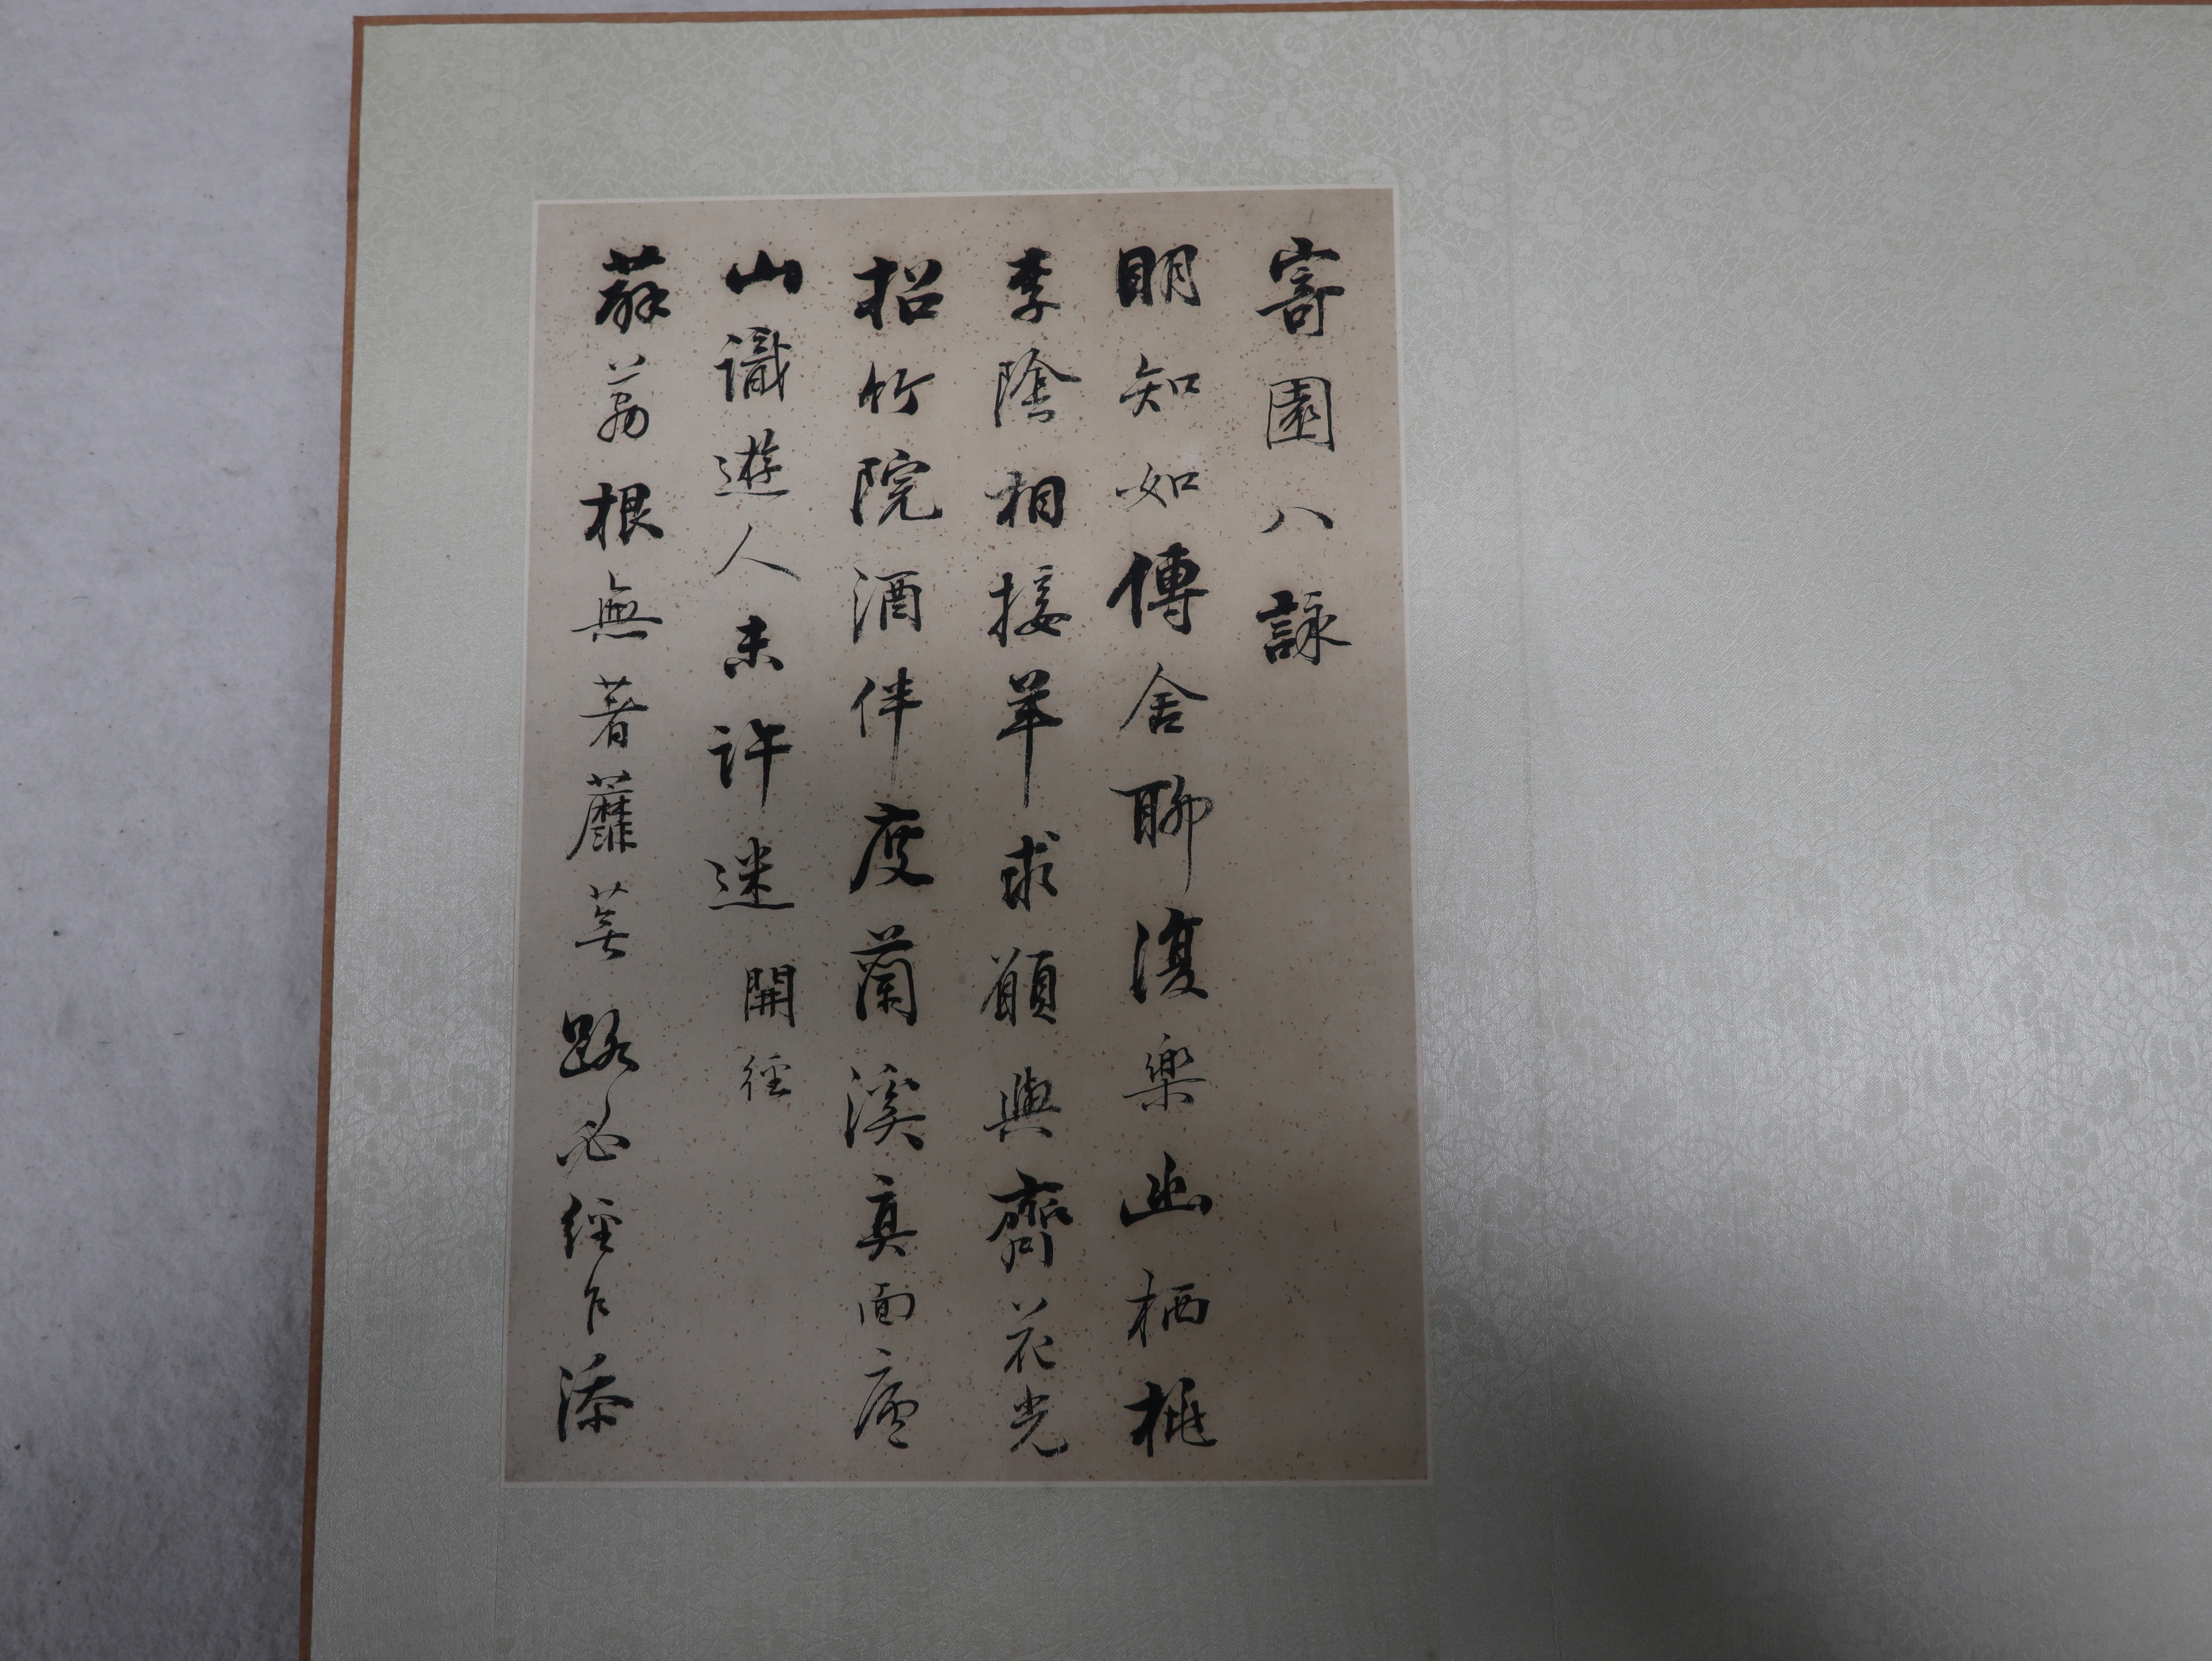 寄園八詠
明知如傳舍聊復樂幽栖桃
李陰相接羊求願與齊花光
招竹院酒伴度蘭溪真面廬
山識遊人未許迷 開徑
薜荔根無著蘼蕪路必經乍添